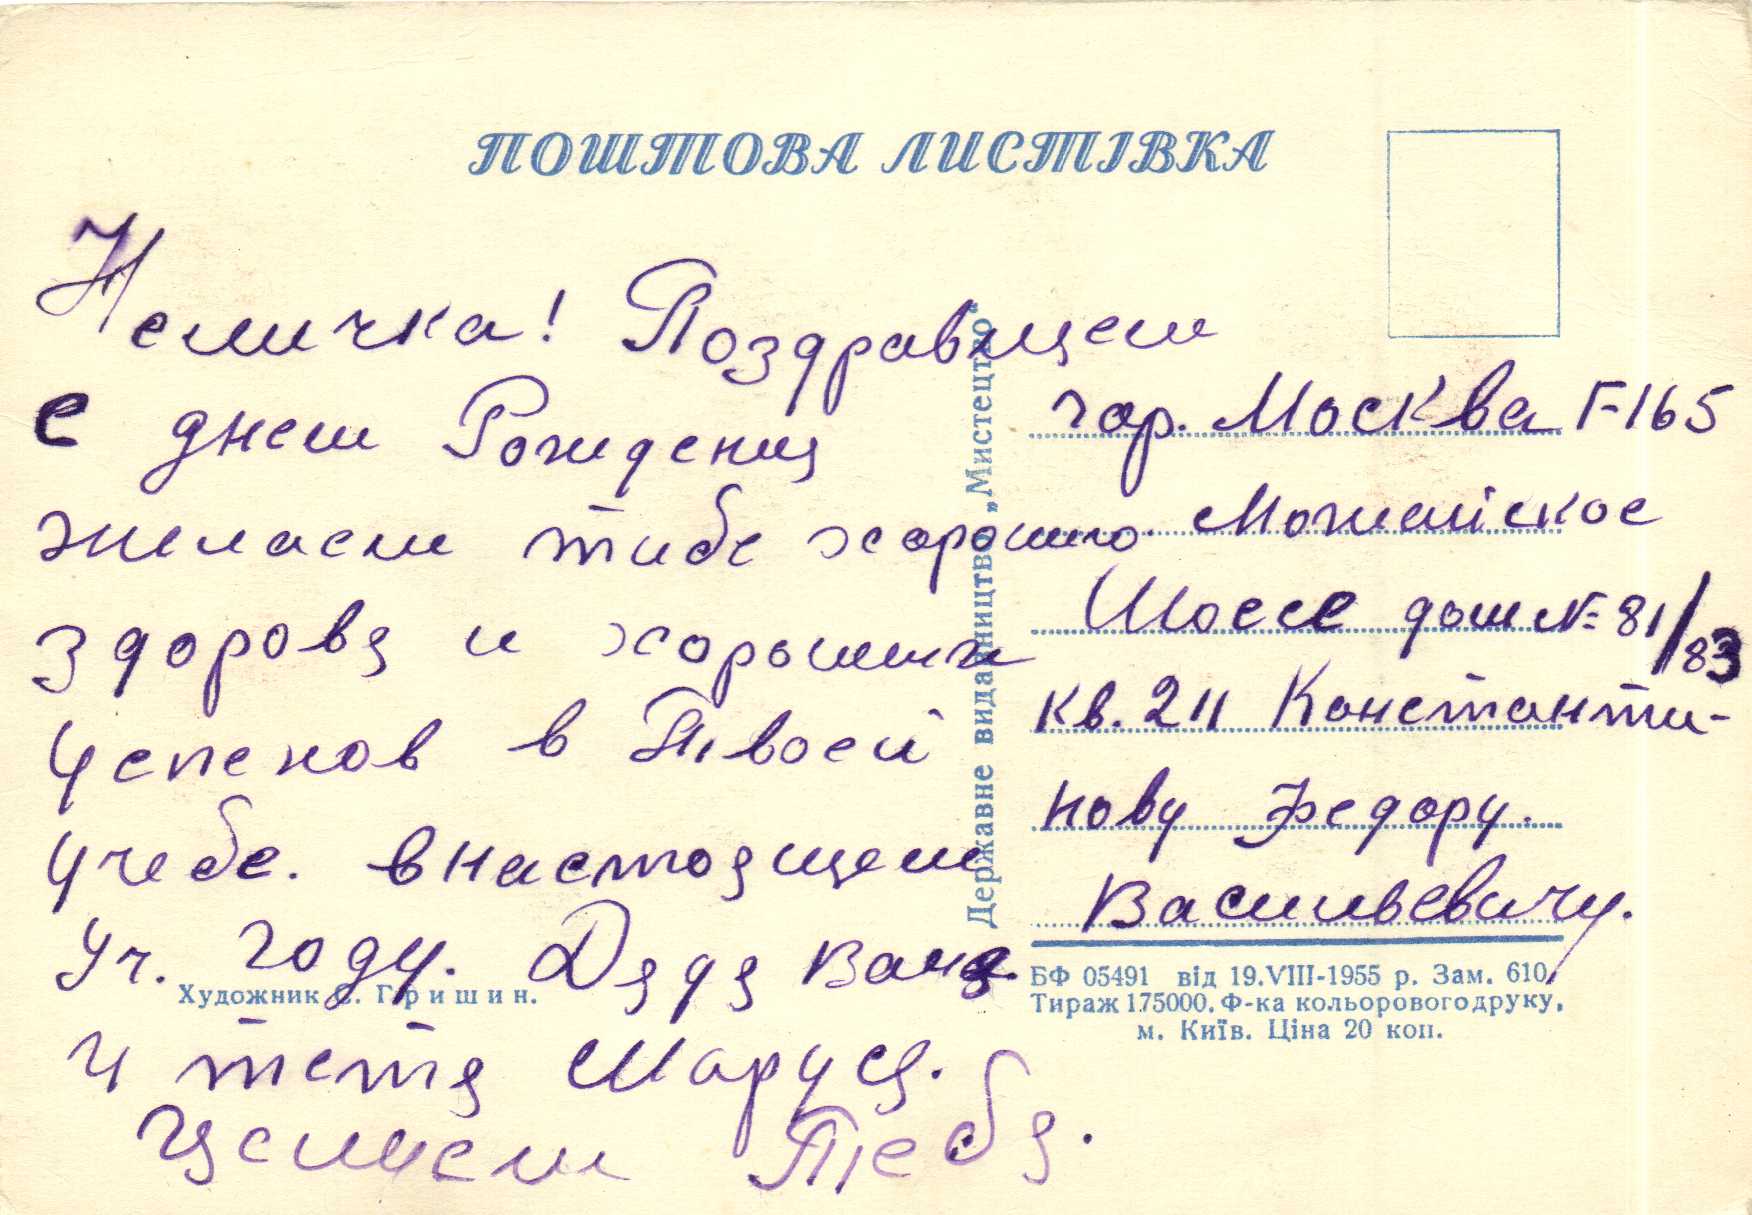 ПОШТОВА ЛИСТІВКА
Немичка! Поздравляем
с днем Рождения
желаем тибе харошио
здоровя и хороших
успехов в Твоей
учебе. в настоящем
уч. году. Дядя Ваня.
и тетя Маруся.
Целуем Тебя.
гор. Москва Г-165
Можайское
Шоссе дом № 81/83
кв. 211 Константи-
нову Федору.
Васильевичу.
Державне видавництво „Мистецтво“
Художник Гришин.
БФ 05491 від 19.VIII-1955 р. Зам. 610,
Тираж 175000. Ф-ка кольорового друку,
м. Київ. Ціна 20 коп.